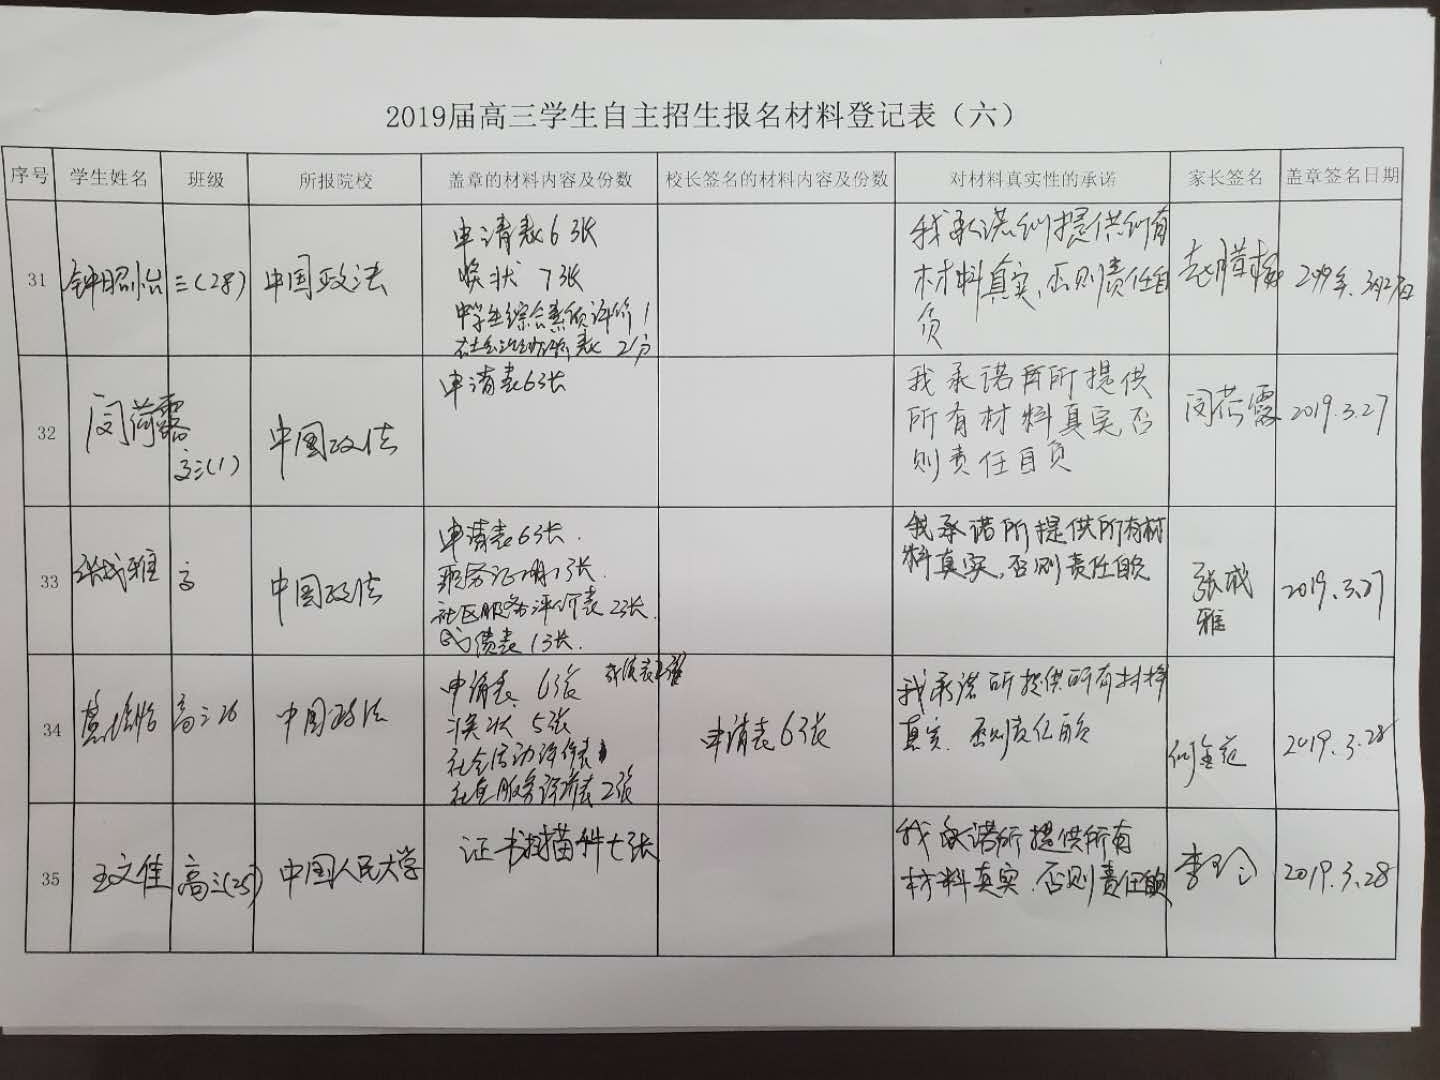 2019届高三学生自主招生报名材料登记表（六）
序号 学生姓名 班级 所报院校 盖章的材料内容及份数 校长签名的材料内容及份数 对材料真实性的承诺 家长签名 盖章签名日期
31 钟昭怡 三(28) 中国政法
申请表6张
奖状 7张
中学生综合素质评价1
表 2份
我承诺所提供所有
材料真实,否则责任自
负
2019年3月27日
32 闵荷露
高三(1)
中国政法
申请表6张
我承诺所提供
所有材料真实否
则责任自负
闵荷露 2019.3.27
33 张成雅 高 中国政法
申请表6张.
证明1张.
社区服务评价表2张.
成绩表1张.
我承诺所提供所有材
料真实,否则责任自负
张成
雅
2019.3.27
34 高三26 中国政法
申请表 6张 成绩表
奖状 5张
社会活动评价表
社区服务评价表2张
申请表6张
我承诺所提供所有材料
真实,否则责任自负
2019.3.28
35 王文佳 高三(25) 中国人民大学
证书扫描件七张
我承诺所提供所有
材料真实,否则责任自负
李玲
2019.3.28